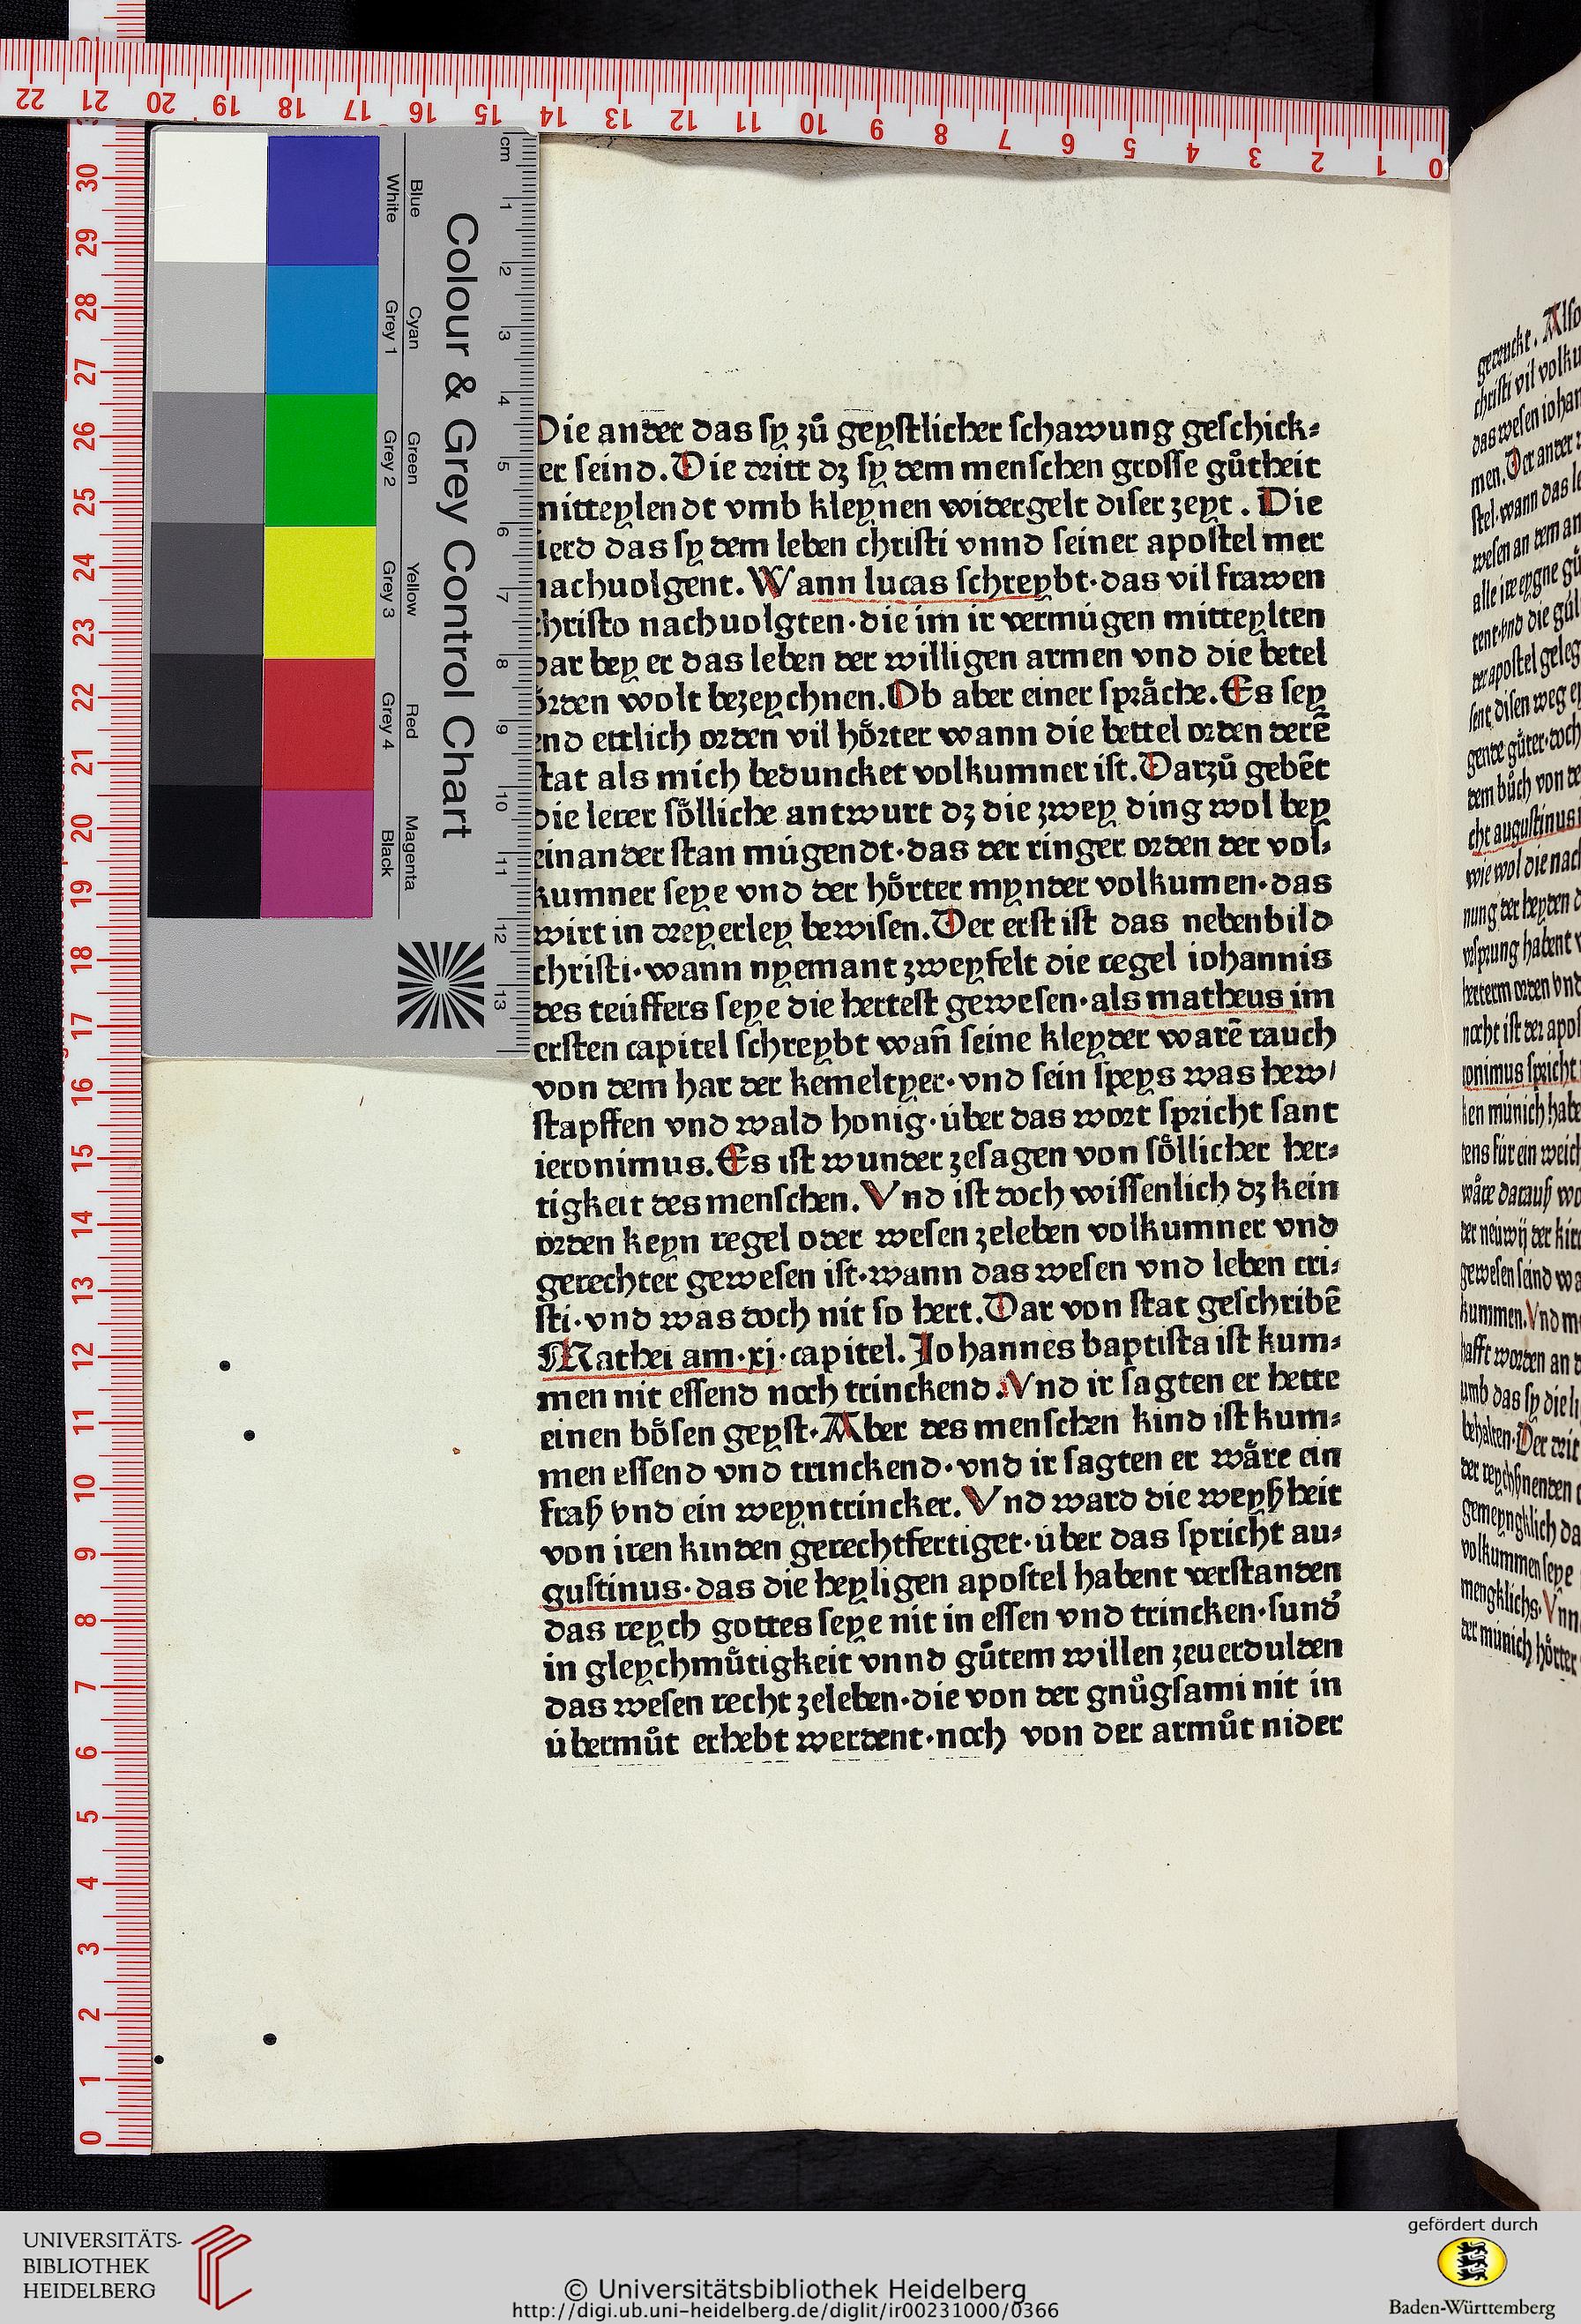 Die ander das sy zů geystlicher schawung geschick⸗
er seind. Die dritt dz sy dem menschen grosse gůtheit
mitteylendt vmb kleynen widergelt diser zeyt. Die
ierd das sy dem leben christi vnnd seiner apostel mer
nachuolgent. Wann lucas schreybt·das vil frawen
christo nachuolgten·die im ir vermúgen mitteylten
dar bey er das leben der willigen armen vnd die betel
orden wolt bezeychnen. Ob aber einer språche. Es sey
end ettlich orden vil hőrter wann die bettel orden derē
stat als mich beduncket volkumner ist. Darzů gebēt
die lerer sőlliche antwurt dz die zwey ding wol bey
einander stan múgendt·das der ringer orden der vol⸗
kumner seye vnd der hőrter mynder volkumen·das
wirt in dreyerley bewisen. Der erst ist das nebenbild
christi·wann nyemant zweyfelt die regel iohannis
des teúffers seye die hertest gewesen·als matheus im
ersten capitel schreybt wañ seine kleyder warē rauch
von dem har der kemeltyer·vnd sein speys was hew/
stapffen vnd wald honig·úber das wort spricht sant
ieronimus. Es ist wunder zesagen von sőllicher her⸗
tigkeit des menschen. Vnd ist doch wissenlich dz kein
orden keyn regel oder wesen zeleben volkumner vnd
gerechter gewesen ist·wann das wesen vnd leben cri⸗
sti·vnd was doch nit so hert. Dar von stat geschribē
Mathei am·xj·capitel. Johannes baptista ist kum⸗
men nit essend noch trinckend. Vnd ir sagten er hette
einen bősen geyst·Aber des menschen kind ist kum⸗
men essend vnd trinckend·vnd ir sagten er wåre ein
fraß vnd ein weyntrincker. Vnd ward die weyßheit
von iren kinden gerechtfertiget·úber das spricht au⸗
gustinus·das die heyligen apostel habent verstanden
das reych gottes seye nit in essen vnd trincken·sund̄
in gleychmůtigkeit vnnd gůtem willen zeuerdulden
das wesen recht zeleben·die von der gnůgsami nit in
úbermůt erhebt werdent·noch von der armůt nider
gedruckt. Also
christi vil volku
das wesen iohan
men. Der ander
stel·wann das le
wesen an dem an
alle ire eygne gů
tent·vnd die gúl
der apostel geleg
sent disen weg ey
gende gúter·doch
dem bůch von de
cht augustinus
wie wol die nach
nung der heyden
vrsprung habent
herterm orden vnd
nocht ist der apos
onimus spricht
ken múnich habe
tens fúr ein weich
wåre darauß wo
der neúwij der kirc
gewesen seind wa
kummen. Vnd m
hafft worden an d
umb das sy die li
behalten. Der drit
der reychßnenden
gemeyngklich da
volkummen seye
mengklichs. Vnn
der munich hőrter
Colour & Grey Control Chart
Blue
White
Cyan
Grey 1
Green
Grey 2
Yellow
Grey 3
Red
Grey 4
Magenta
Black
cm 1 2 3 4 5 6 7 8 9 10 11 12 13
22 21 20 19 18 17 16 15 14 13 12 11 10 9 8 7 6 5 4 3 2 1 0
30 29 28 27 26 25 24 23 22 21 20 19 18 17 16 15 14 13 12 11 10 9 8 7 6 5 4 3 2 1 0
UNIVERSITÄTS-
BIBLIOTHEK
HEIDELBERG
© Universitätsbibliothek Heidelberg
http://digi.ub.uni-heidelberg.de/diglit/ir00231000/0366
gefördert durch
Baden-Württemberg